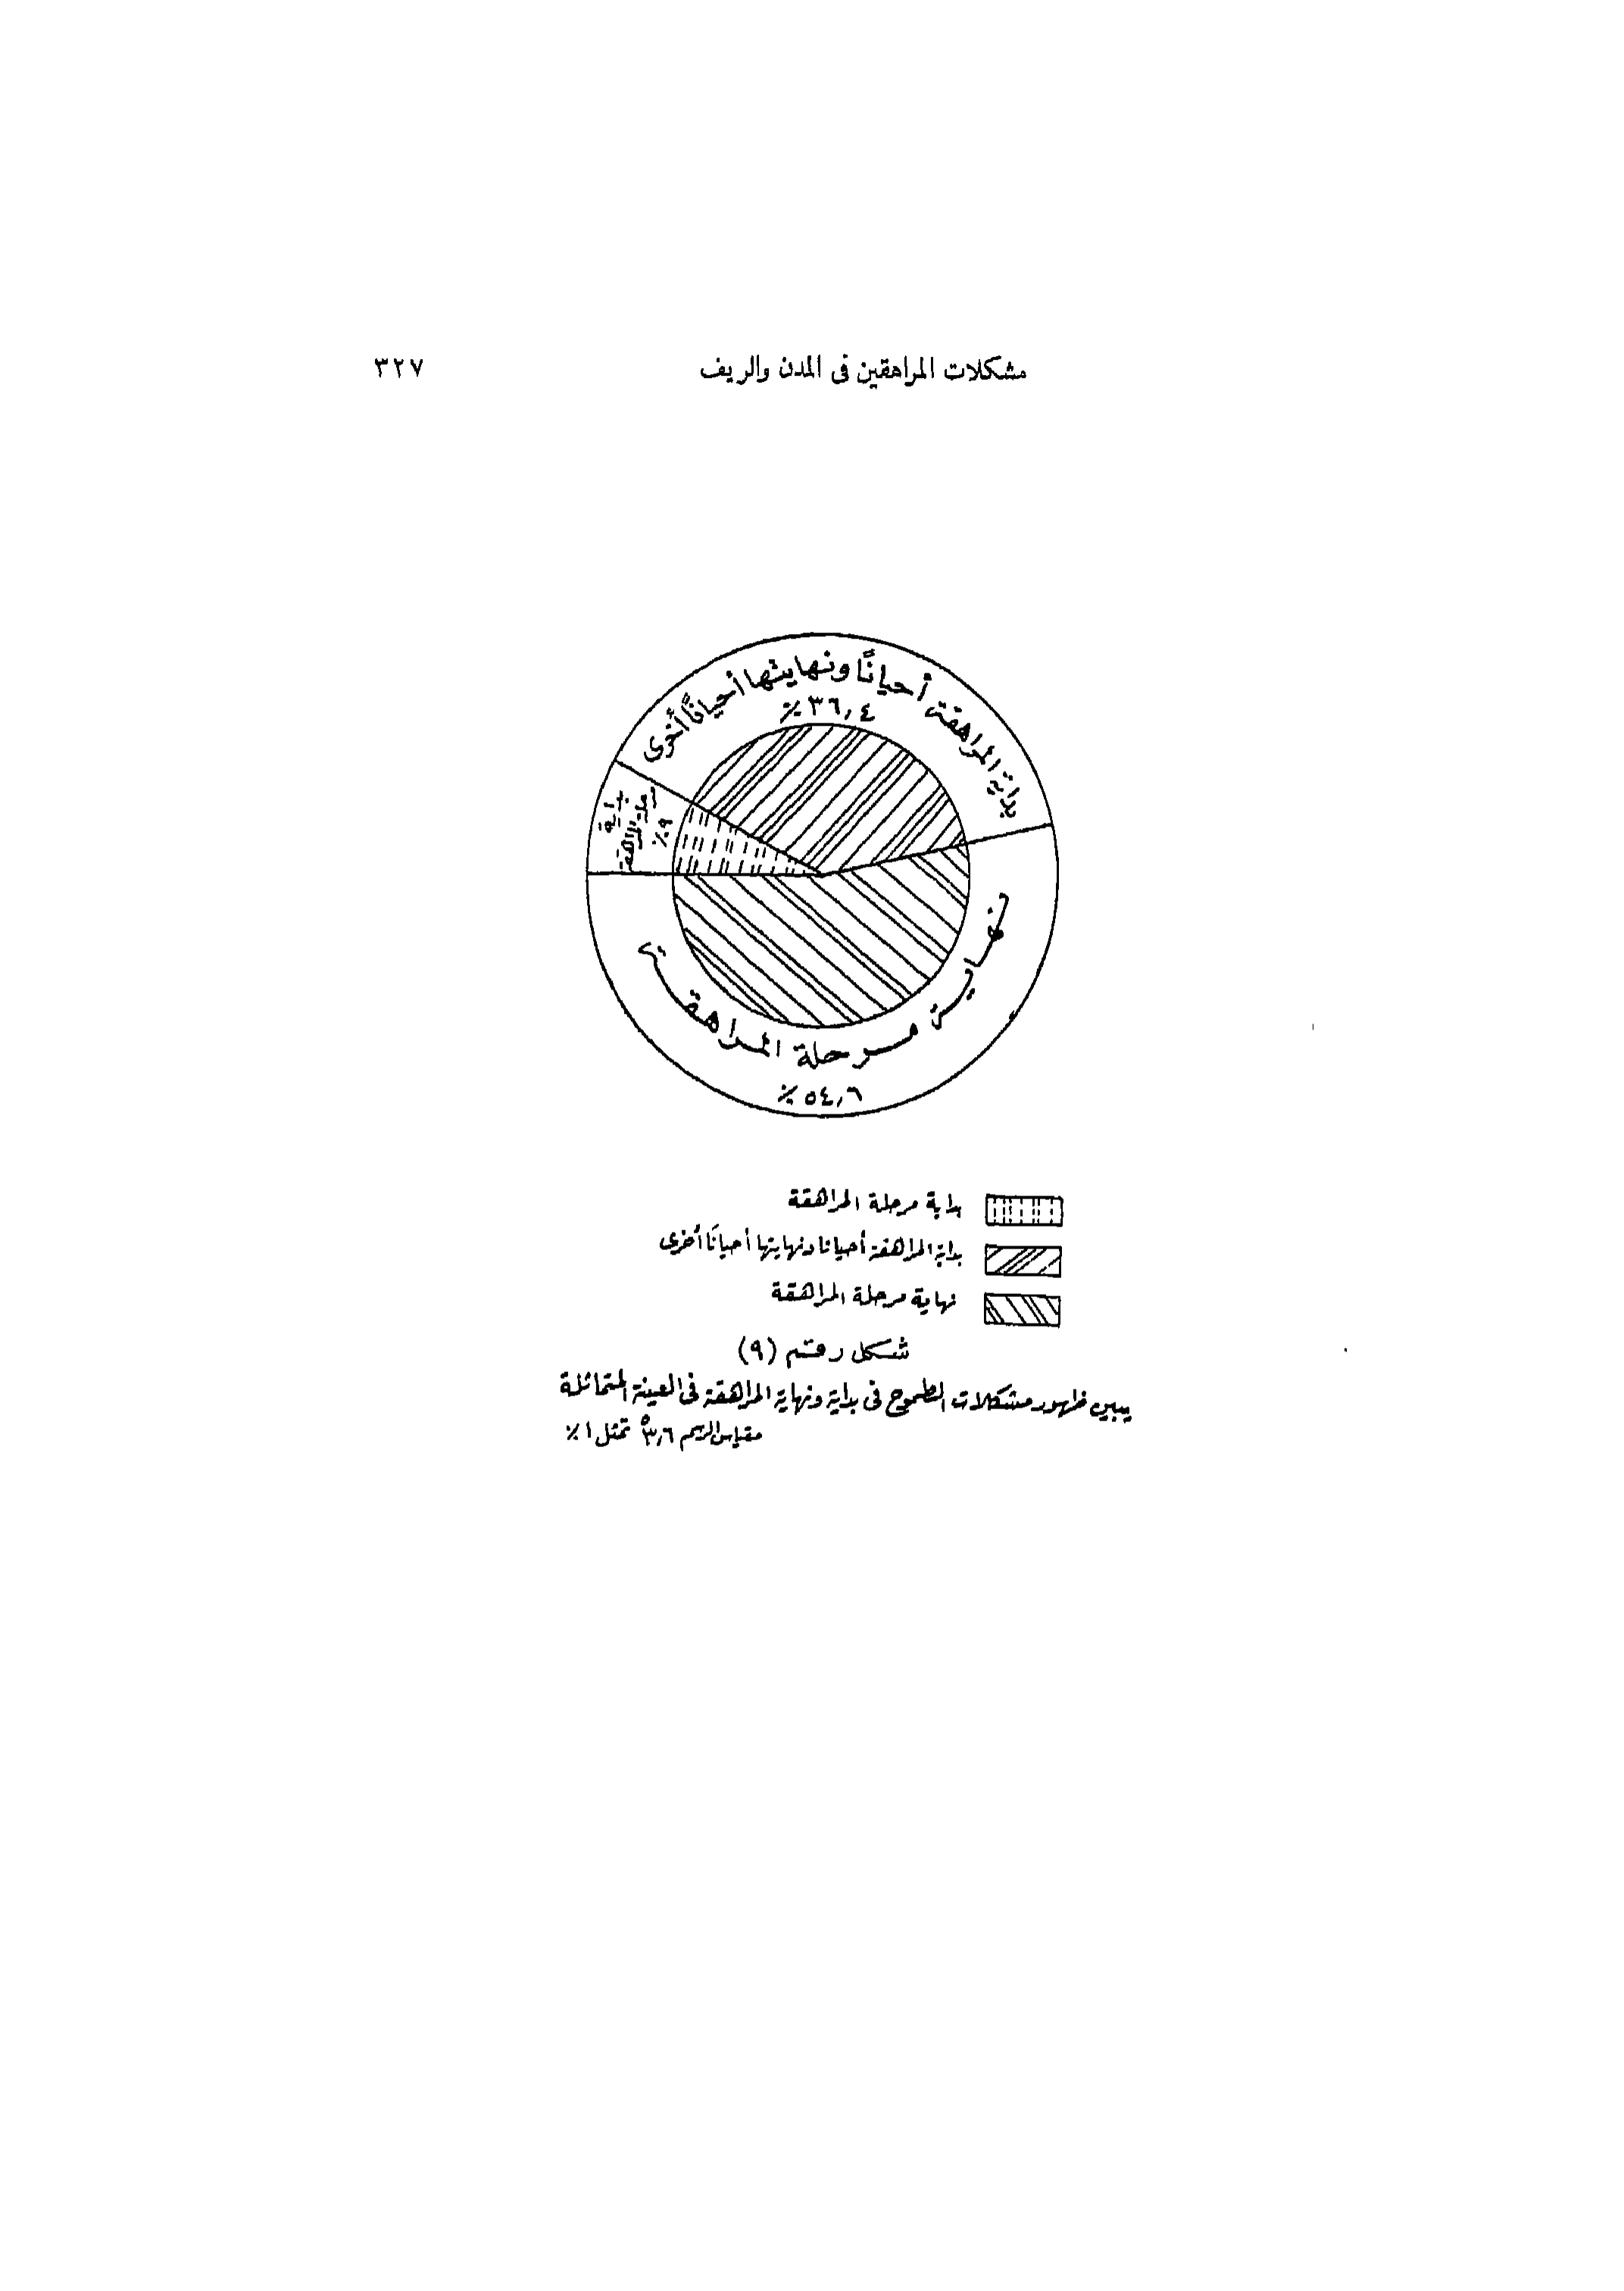 مشكلات المراهقين فى المدن والريف
٣٢٧
بداية المراهقة أحيانًا ونهايتها أحيانًا أخرى
٣٦,٤ ٪
بداية
مرحلة المراهقة
٩٪
نهاية مرحلة المراهقة
٥٤,٦ ٪
بداية مرحلة المراهقة
بداية المراهقة أحيانا ونهايتها أحيانًا أخرى
نهاية مرحلة المراهقة
شكل رقم (٩)
يبين ظهور مشكلات الطموح فى بداية ونهاية المراهقة فى العينة المتماثلة
مقياس الرسم ٣,٦° تمثل ١ ٪